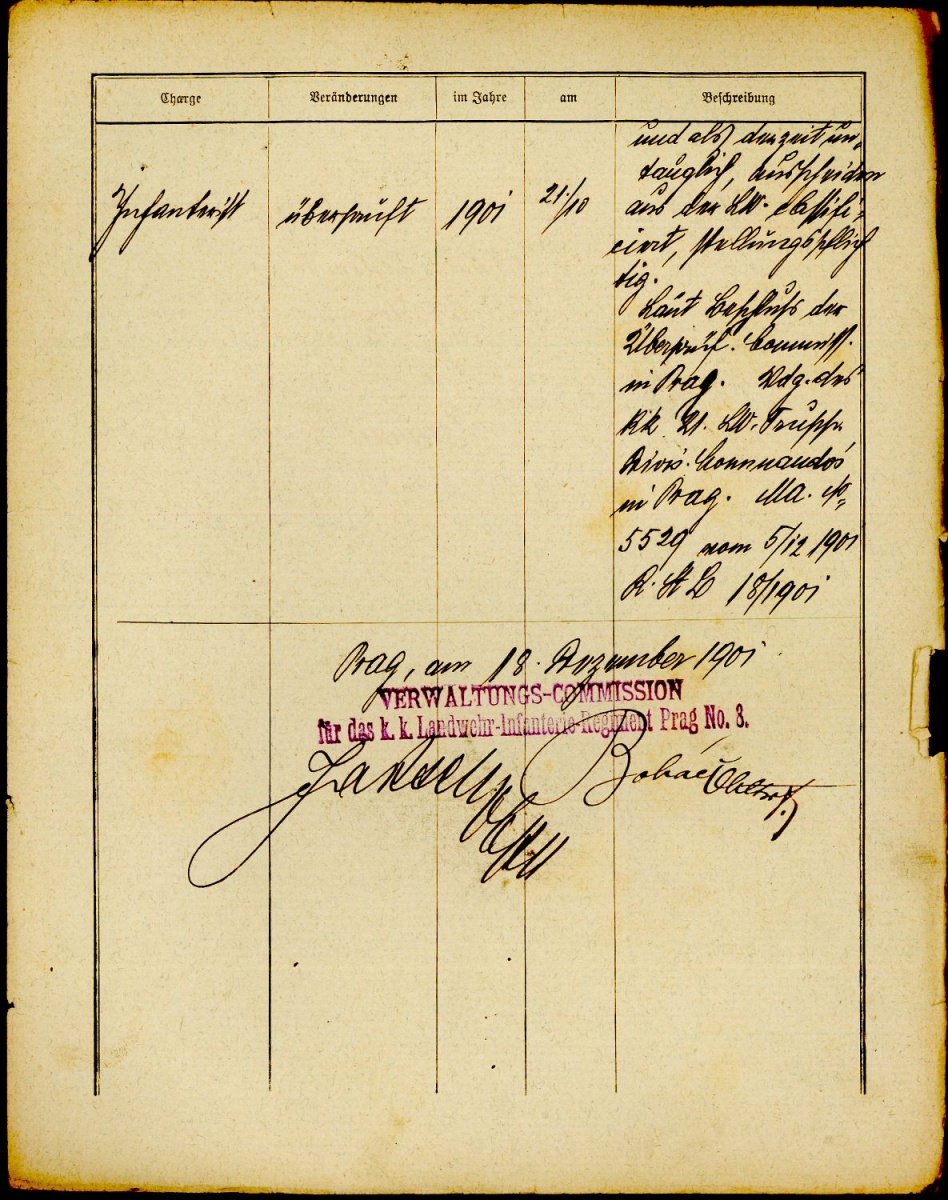 Charge Veränderungen im Jahre am Beschreibung
und als derzeit un-
tauglich, Ausscheiden
Infanterist überprüft 1901 21./10 aus der LW. classifi-
ciert, stellungspflich
tig.
Laut Beschluss der
Überprüf. Commiss.
in Prag. Vdg. des
kk 21. LW. Trupp.
Divis. Commando's
in Prag. MA. No
5529 vom 5/12 1901
18/1901
Prag, am 18. Dezember 1901
VERWALTUNGS-COMMISSION
für das k. k. Landwehr-Infanterie-Regiment Prag No. 8.
Bohač